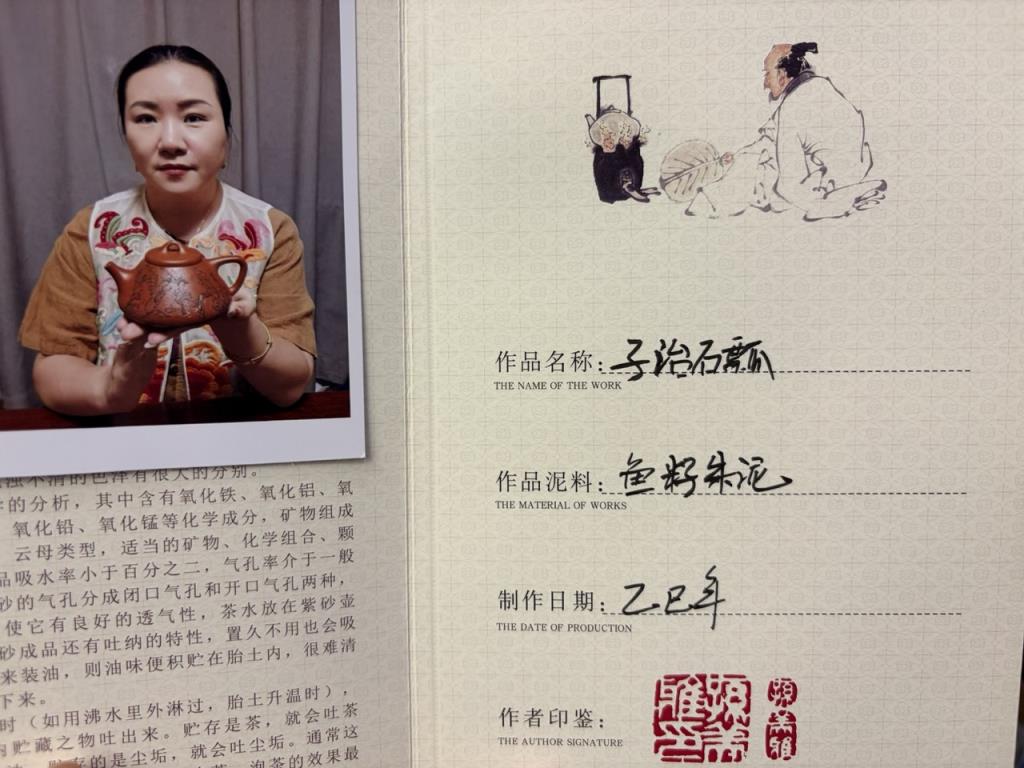 浊不清的色泽有很大的分别。
的分析，其中含有氧化铁、氧化铝、氧
氧化铅、氧化锰等化学成分，矿物组成
云母类型，适当的矿物、化学组合、颗
品吸水率小于百分之二，气孔率介于一般
砂的气孔分成闭口气孔和开口气孔两种，
使它有良好的透气性，茶水放在紫砂壶
砂成品还有吐纳的特性，置久不用也会吸
来装油，则油味便积贮在胎土内，很难清
下来。
时（如用沸水里外淋过，胎土升温时），
内贮藏之物吐出来。贮存是茶，就会吐茶
贮存的是尘垢，就会吐尘垢。通常这
泡茶的效果最
作品名称：子冶石瓢
THE NAME OF THE WORK
作品泥料：鱼籽朱泥
THE MATERIAL OF WORKS
制作日期：乙巳年
THE DATE OF PRODUCTION
作者印鉴：
THE AUTHOR SIGNATURE